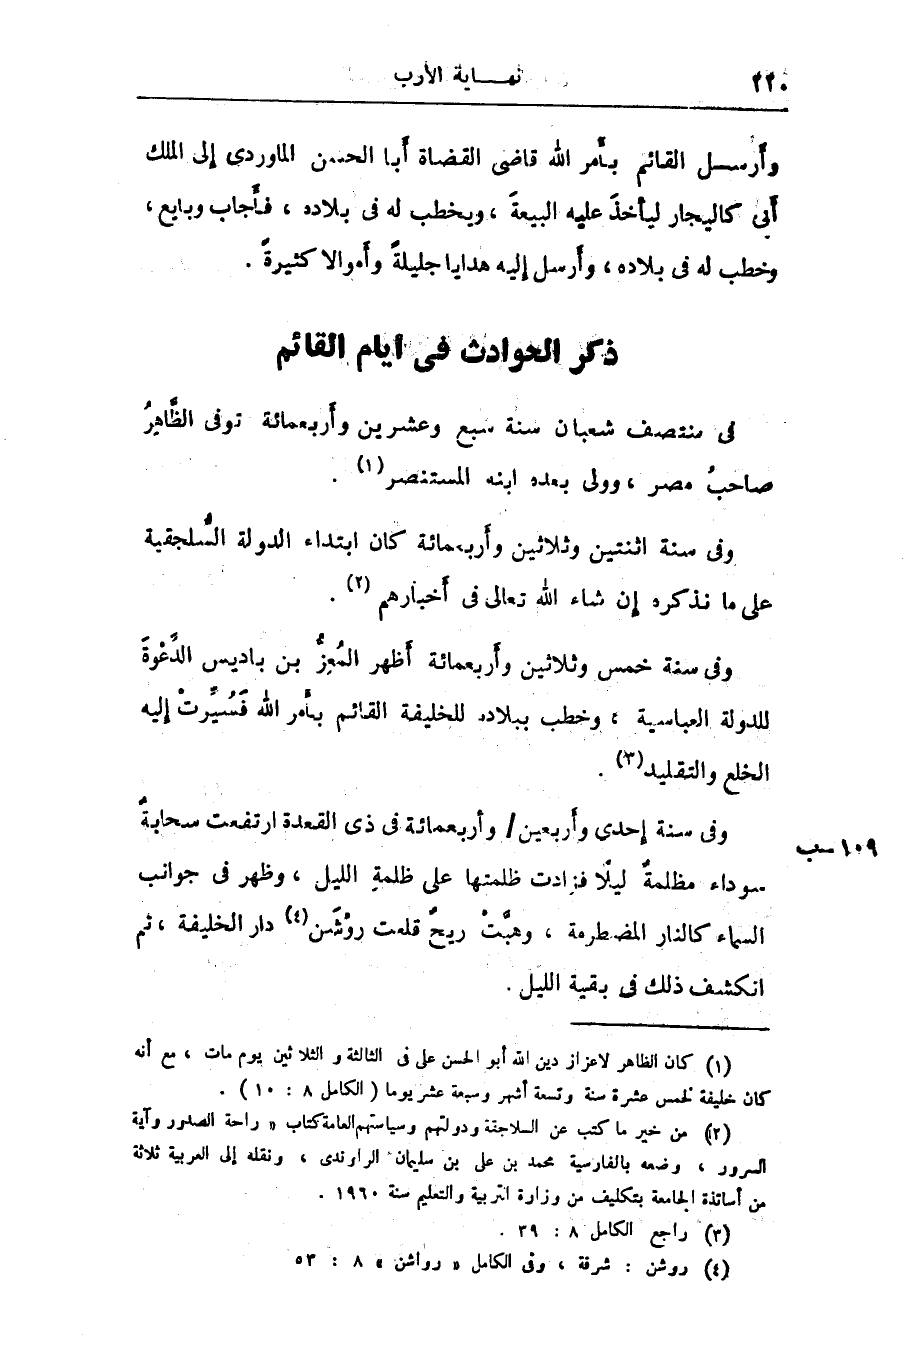 ٢٢٠
نهـــاية الأرب
وأَرســل القائم بأَمر الله قاضى القضاة أَبا الحسن الماوردى إلى الملك
أَبى كاليجار ليأخذَ عليه البيعةَ ، ويخطب له فى بلاده ، فأَجاب وبايع ،
وخطب له فى بلاده ، وأَرسل إليه هدايا جليلةً وأَموالا كثيرةً .
ذكر الحوادث فى أيام القائم
فى منتصف شعبان سنة سبع وعشرين وأَربعمائة توفى الظَّاهِرُ
صاحبُ مصر ، وولى بعده ابنه المستنصر(١) .
وفى سنة اثنتين وثلاثين وأَربعمائة كان ابتداء الدولة السُّلجقية
على ما نذكره إن شاء الله تعالى فى أَخبارهم (٢) .
وفى سنة خمس وثلاثين وأَربعمائة أَظهر المُعِزُّ بن باديس الدَّعْوةَ
للدولة العباسية ، وخطب ببلاده للخليفة القائم بأَمر الله فَسُيِّرتْ إليه
الخلع والتقليد(٣) .
وفى سنة إحدى وأَربعين/ وأَربعمائة فى ذى القعدة ارتفعت سحابةٌ
١٠٩ ــب
سوداء مظلمةٌ ليلًا فزادت ظلمتها على ظلمةِ الليل ، وظهر فى جوانب
السماء كالنار المضطرمة ، وهبَّتْ ريحٌ قلعت روْشَن(٤) دار الخليفة ، ثم
انكشف ذلك فى بقية الليل .
(١) كان الظاهر لاعزاز دين الله أبو الحسن على فى الثالثة و الثلاثين يوم مات ، مع أنه
كان خليفة لخمس عشرة سنة وتسعة أشهر وسبعة عشر يوما ( الكامل ٨ : ١٠ ) .
(٢) من خير ما كتب عن السلاجقة ودولتهم وسياستهم العامة كتاب « راحة الصدور وآية
السرور ، وضعه بالفارسية محمد بن على بن سليمان الراوندى ، ونقله إلى العربية ثلاثة
من أساتذة الجامعة بتكليف من وزارة التربية والتعليم سنة ١٩٦٠ .
(٣) راجع الكامل ٨ : ٣٩ .
(٤) روشن : شرفة ، وفى الكامل « رواشن » ٨ : ٥٣